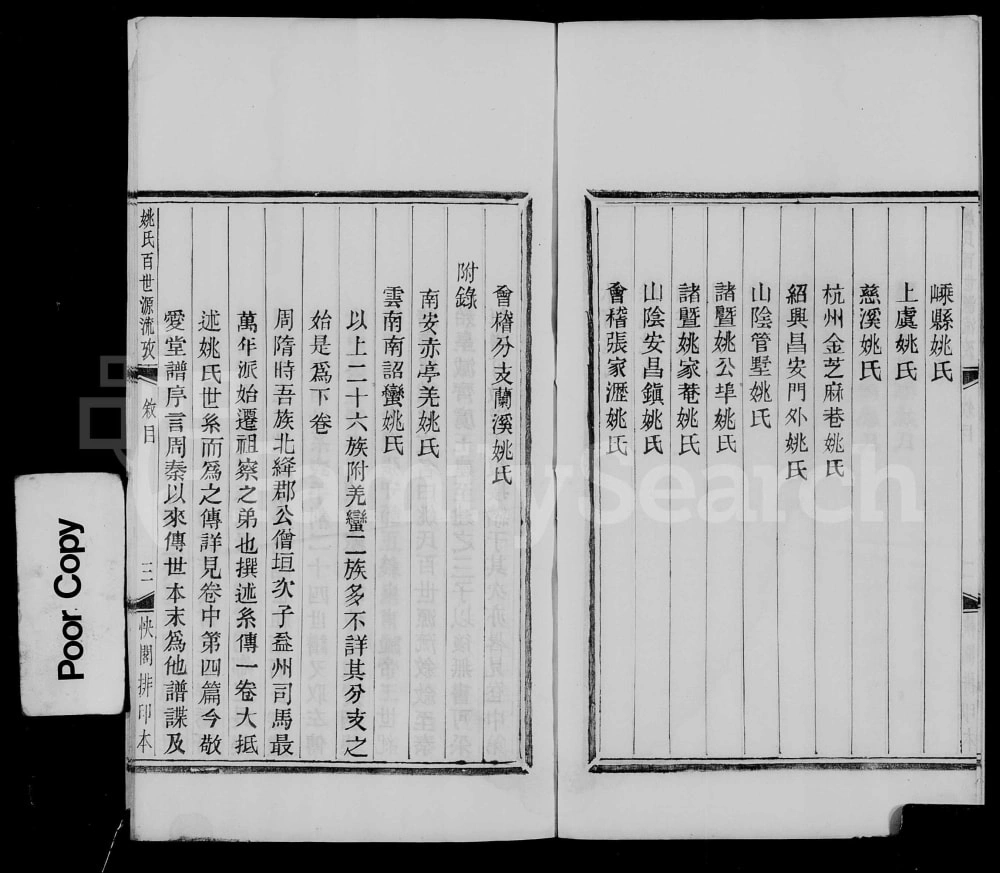 嵊縣姚氏
上虞姚氏
慈溪姚氏
杭州金芝麻巷姚氏
紹興昌安門外姚氏
山陰管墅姚氏
諸暨姚公埠姚氏
諸暨姚家菴姚氏
山陰安昌鎮姚氏
會稽張家瀝姚氏
會稽分支蘭溪姚氏
附錄
南安赤亭羌姚氏
雲南南詔蠻姚氏
以上二十六族附羌蠻二族多不詳其分支之
始是爲下卷
周隋時吾族北絳郡公僧垣次子益州司馬最
萬年派始遷祖察之弟也撰述系傳一卷大抵
述姚氏世系而爲之傳詳見卷中第四篇今敬
愛堂譜序言周秦以來傳世本末爲他譜諜及
姚氏百世源流攷
敘目
三
快閣排印本
Poor Copy
FamilySearch